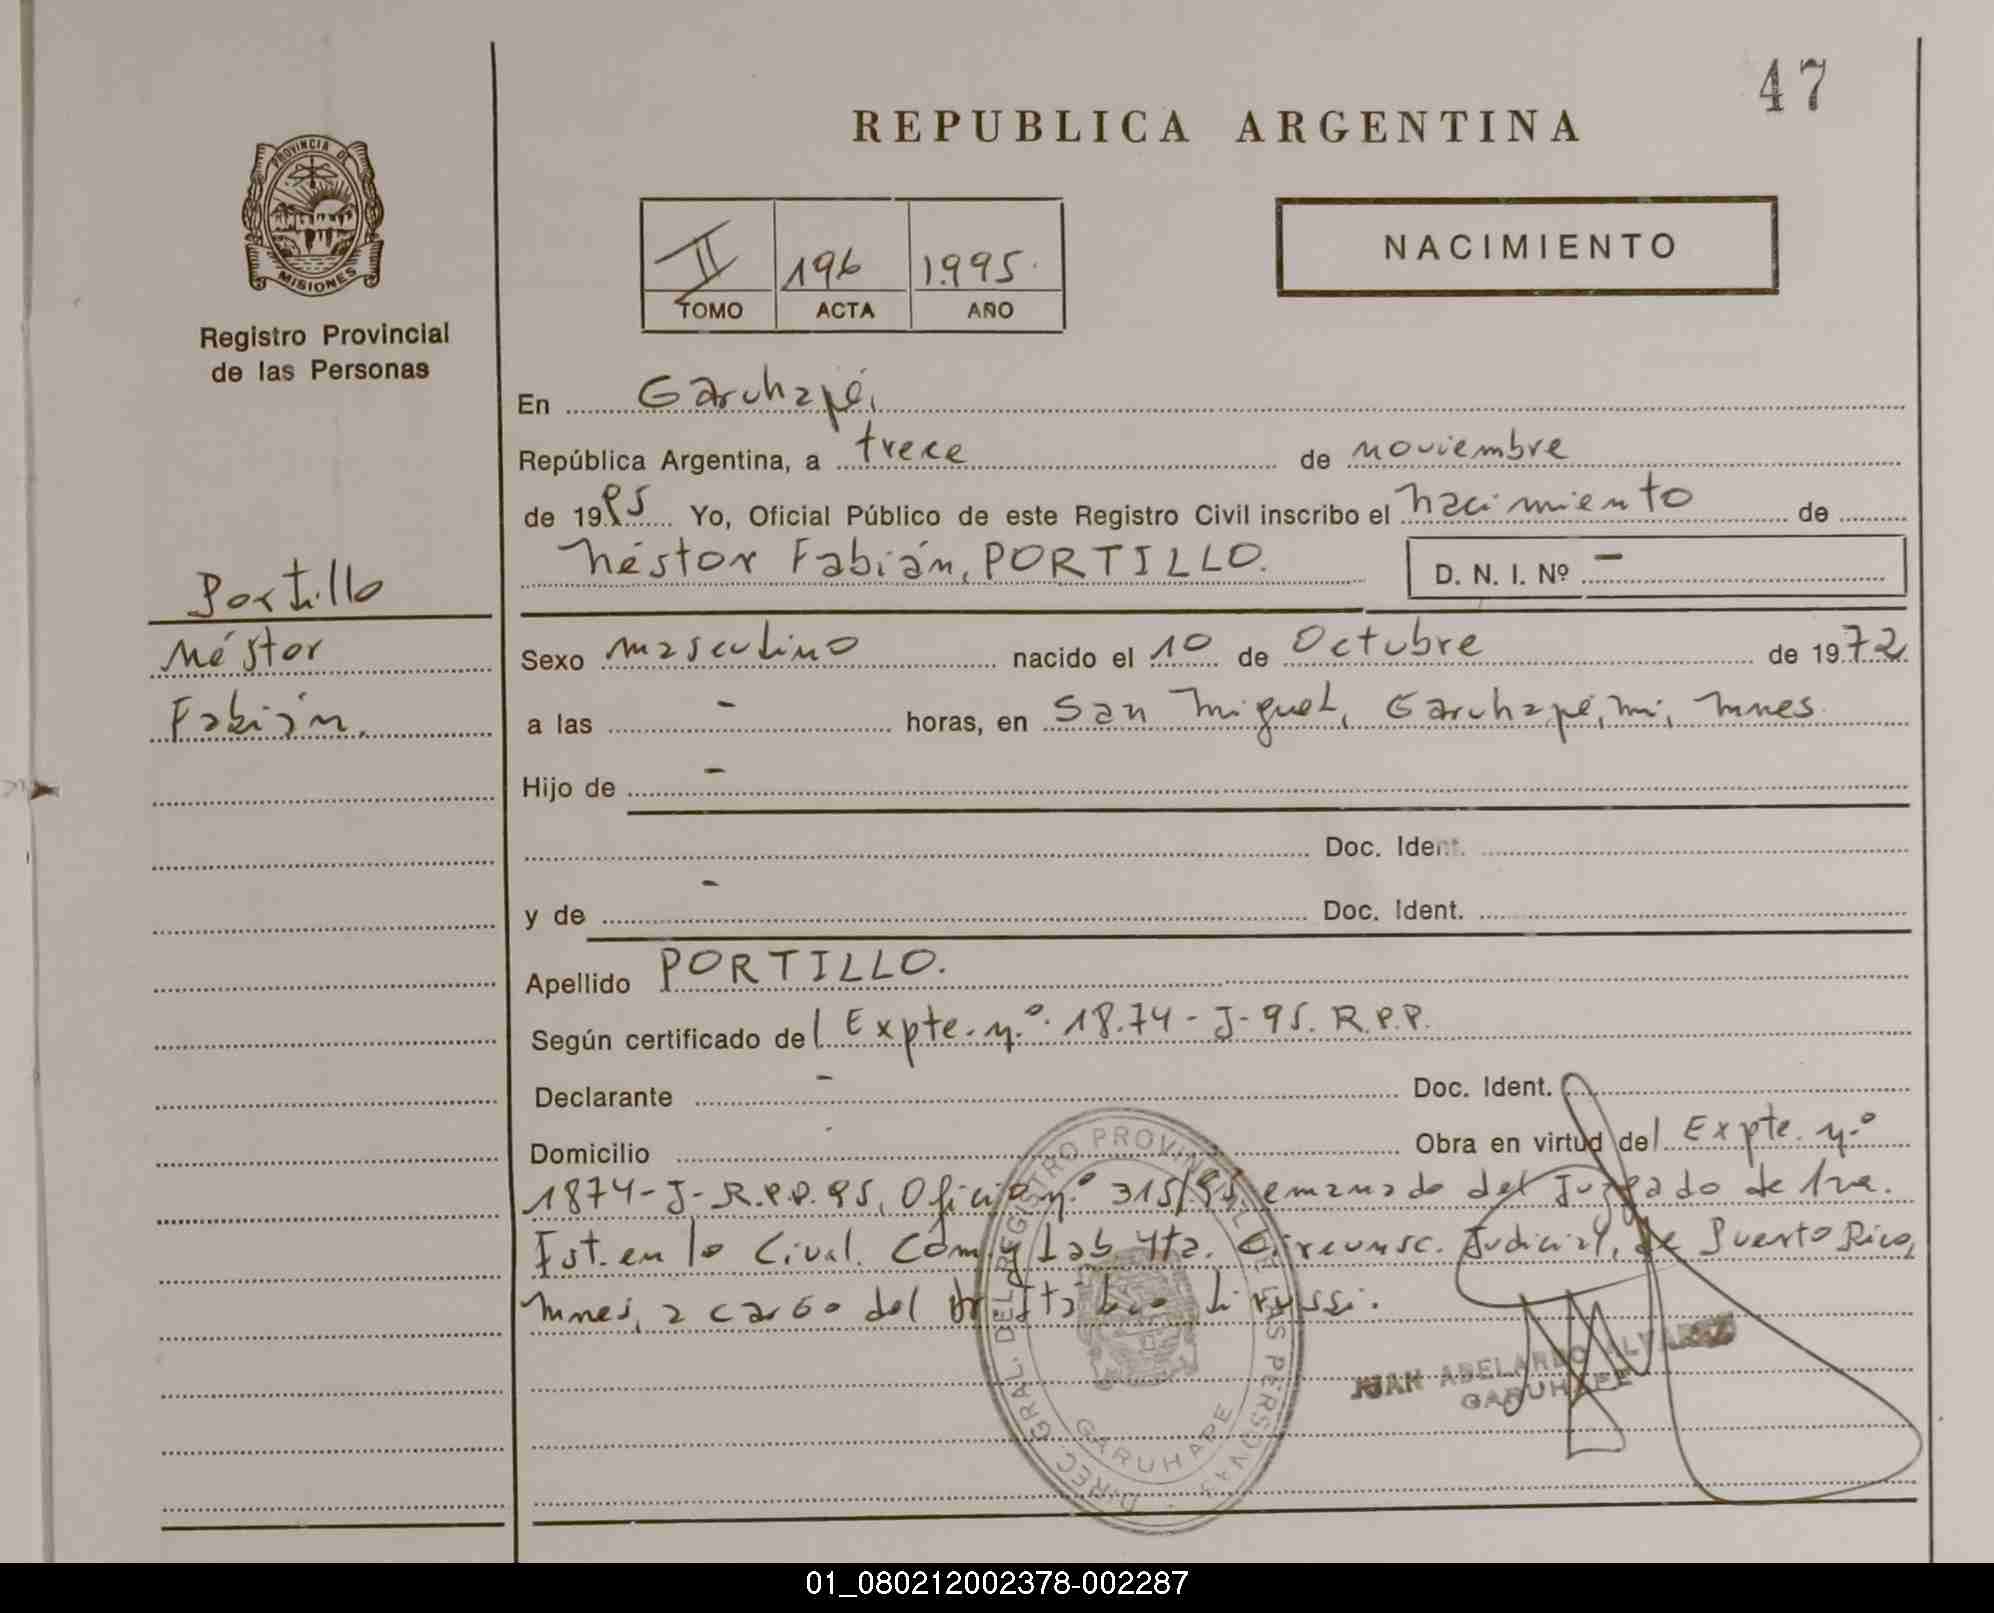 47
REPUBLICA ARGENTINA
PROVINCIA DE
MISIONES
Registro Provincial
de las Personas
II 196 1.995.
TOMO ACTA AÑO
NACIMIENTO
En Garuhapé,
República Argentina, a trece de noviembre
de 1995 Yo, Oficial Público de este Registro Civil inscribo el nacimiento de
Néstor Fabián, PORTILLO. D. N. I. Nº -
Portillo
Néstor
Fabián.
Sexo masculino nacido el 10 de Octubre de 1972
a las - horas, en San Miguel, Garuhapé, mi, Mnes
Hijo de -
Doc. Ident.
y de - Doc. Ident.
Apellido PORTILLO.
Según certificado del Expte. n.º 18.74-J-95. R.P.P.
Declarante - Doc. Ident.
Domicilio Obra en virtud del Expte. n.º
1874-J-R.P.P. 95, Oficio n.º 315/95 emanado del Juzgado de 1ra.
Ist. en lo Civil. Com. y Lab. 4ta. Circunsc. Judicial, de Puerto Rico,
Mnes, a cargo del Dr
DIREC GRAL. DEL REGISTRO PROVINCIAL DE LAS PERSONAS
GARUHAPE
JUAN ABELARDO ALVAREZ
GARUHAPE
01_080212002378-002287